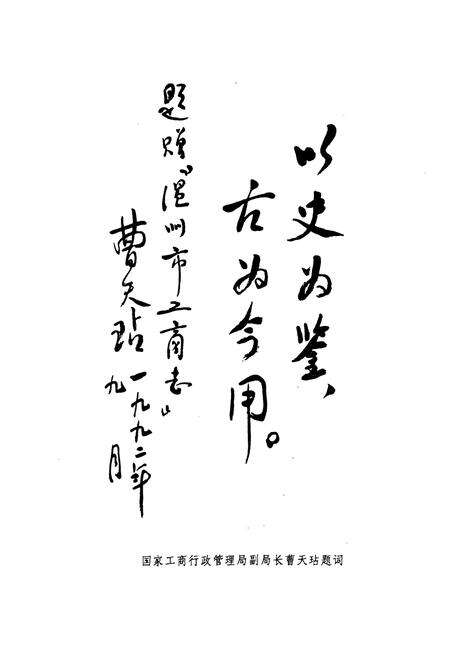 以史为鉴、
古为今用。
题赠《温州市工商志》
曹天玷 一九九二年
九月
国家工商行政管理局副局长曹天玷题词